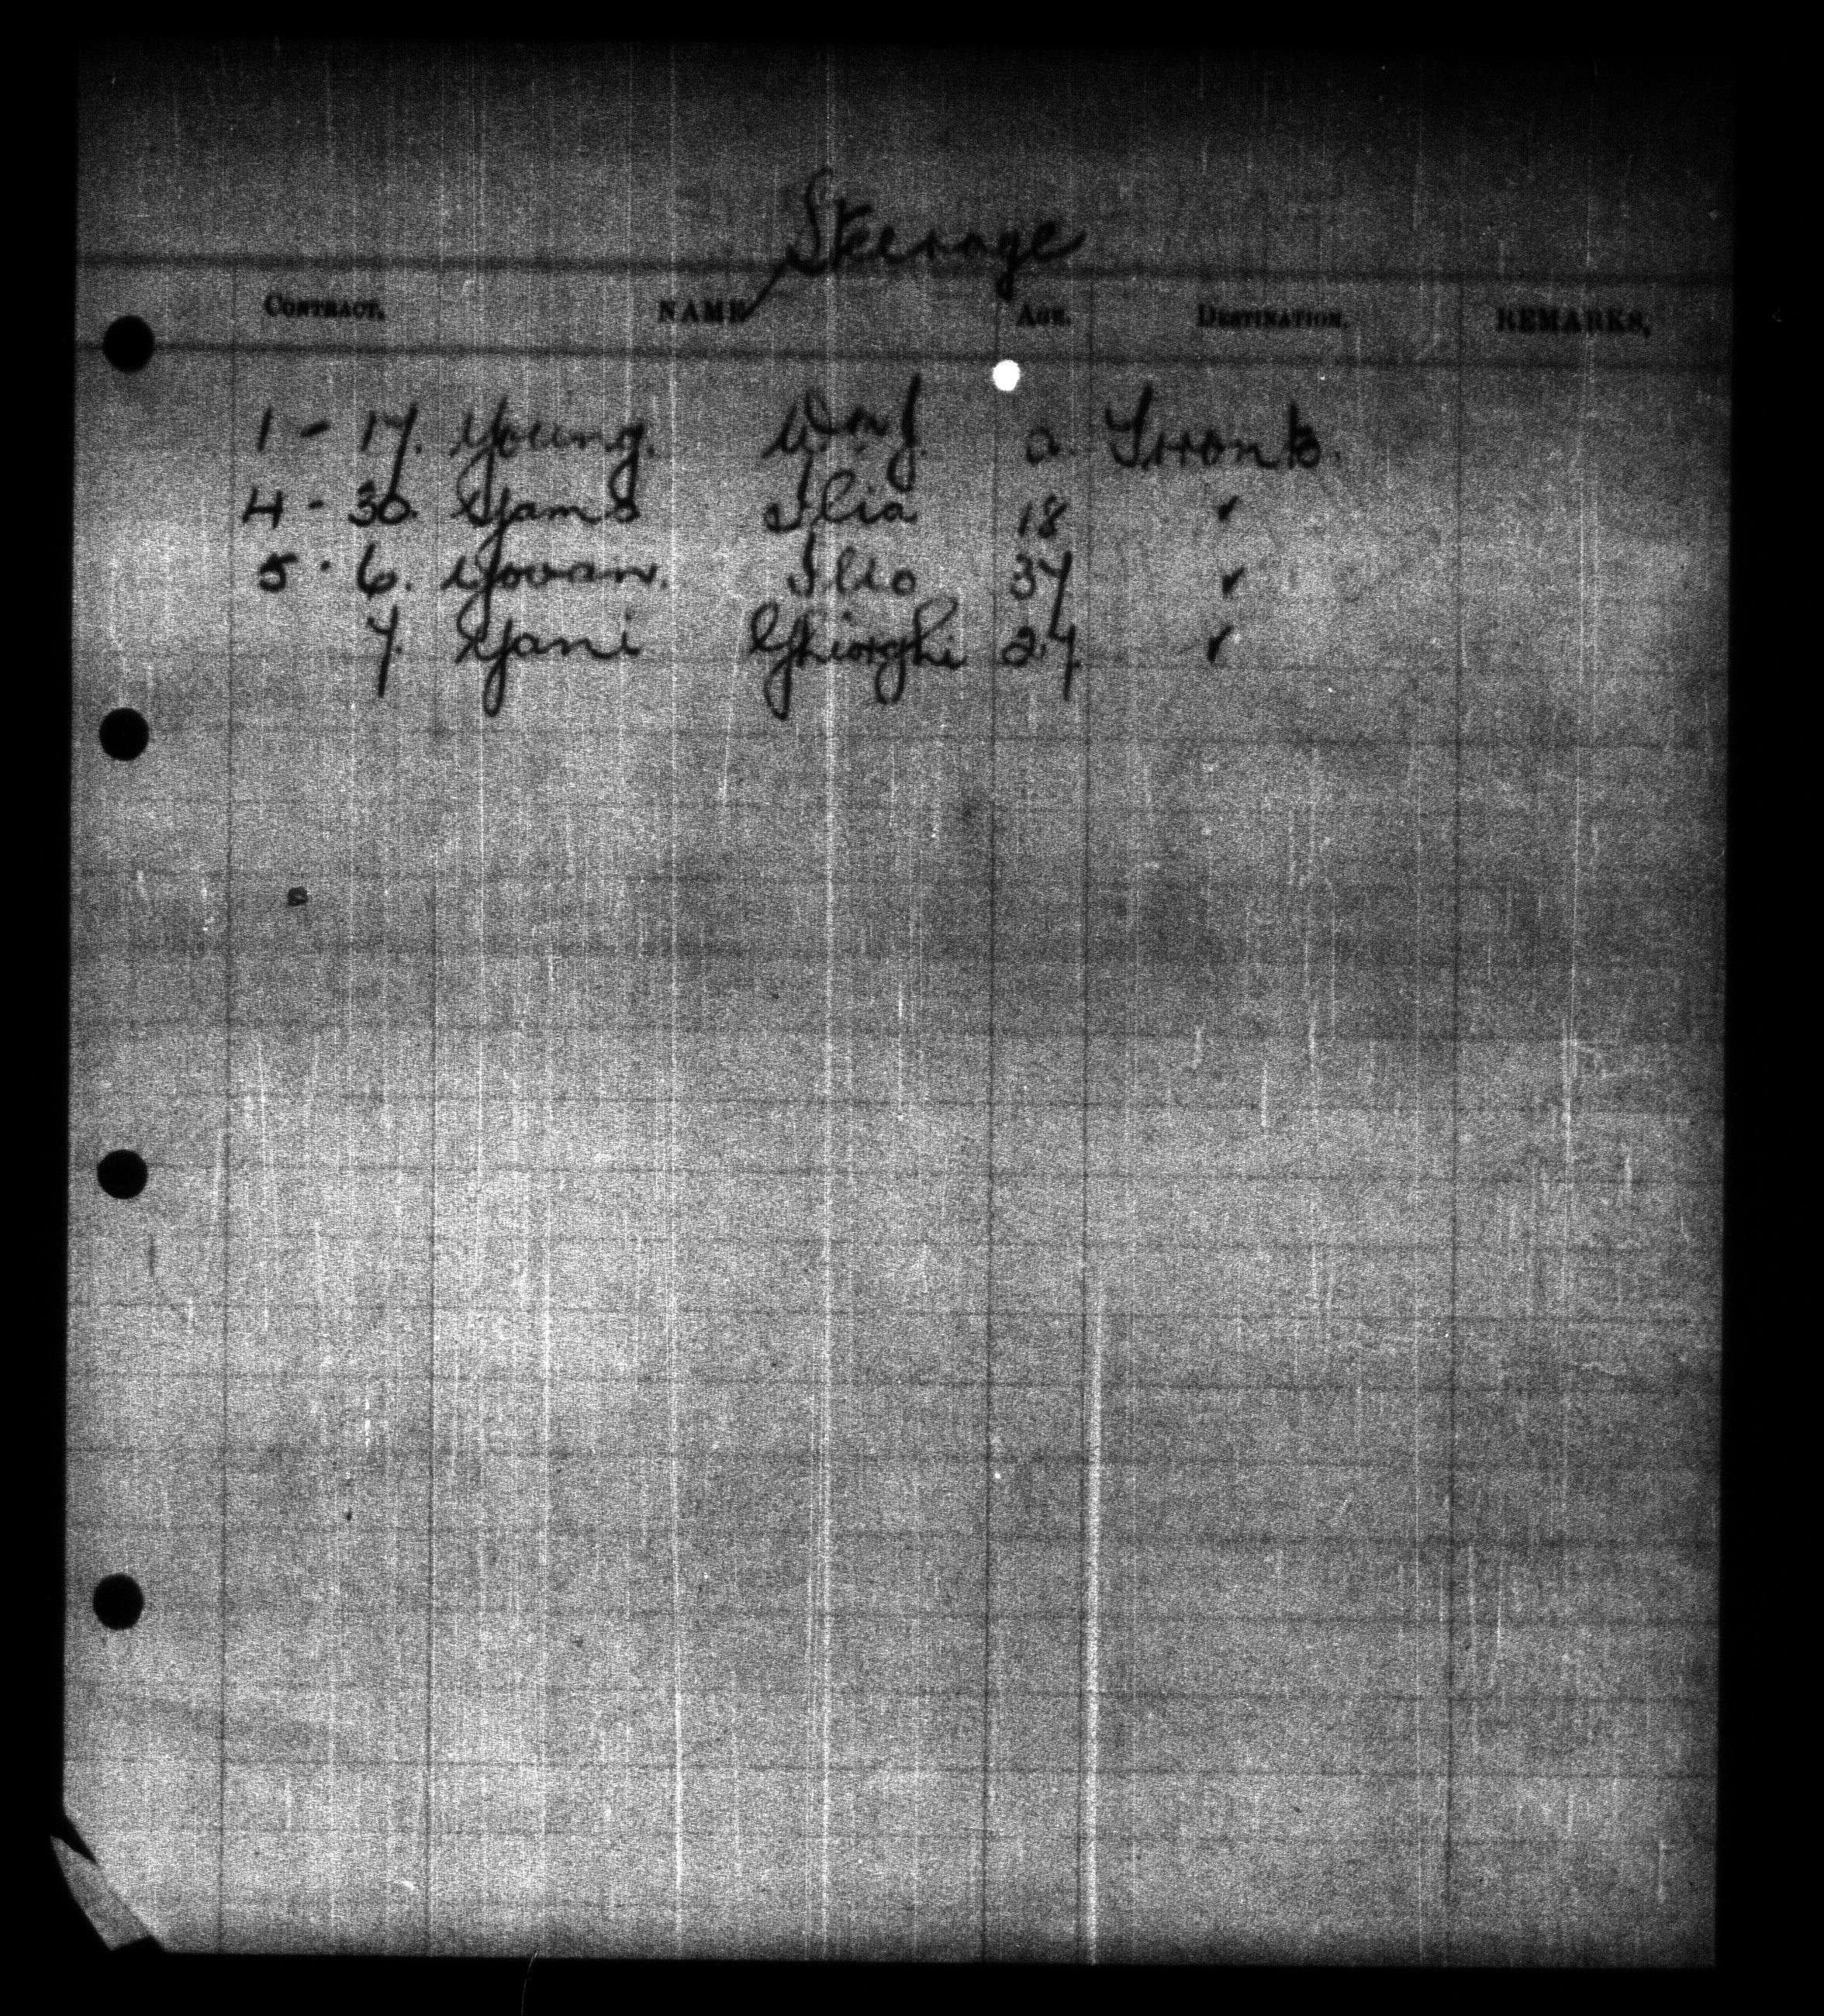 Steerage
CONTRACT. NAME AGE. DESTINATION. REMARKS.
1 - 17. Young. Wm J. a. Toronto.
4 - 30. Yamo Ilia 18 ✓
5 - 6. Yovan. Ilio 37 ✓
7. Yani Ghiorghi 27 ✓